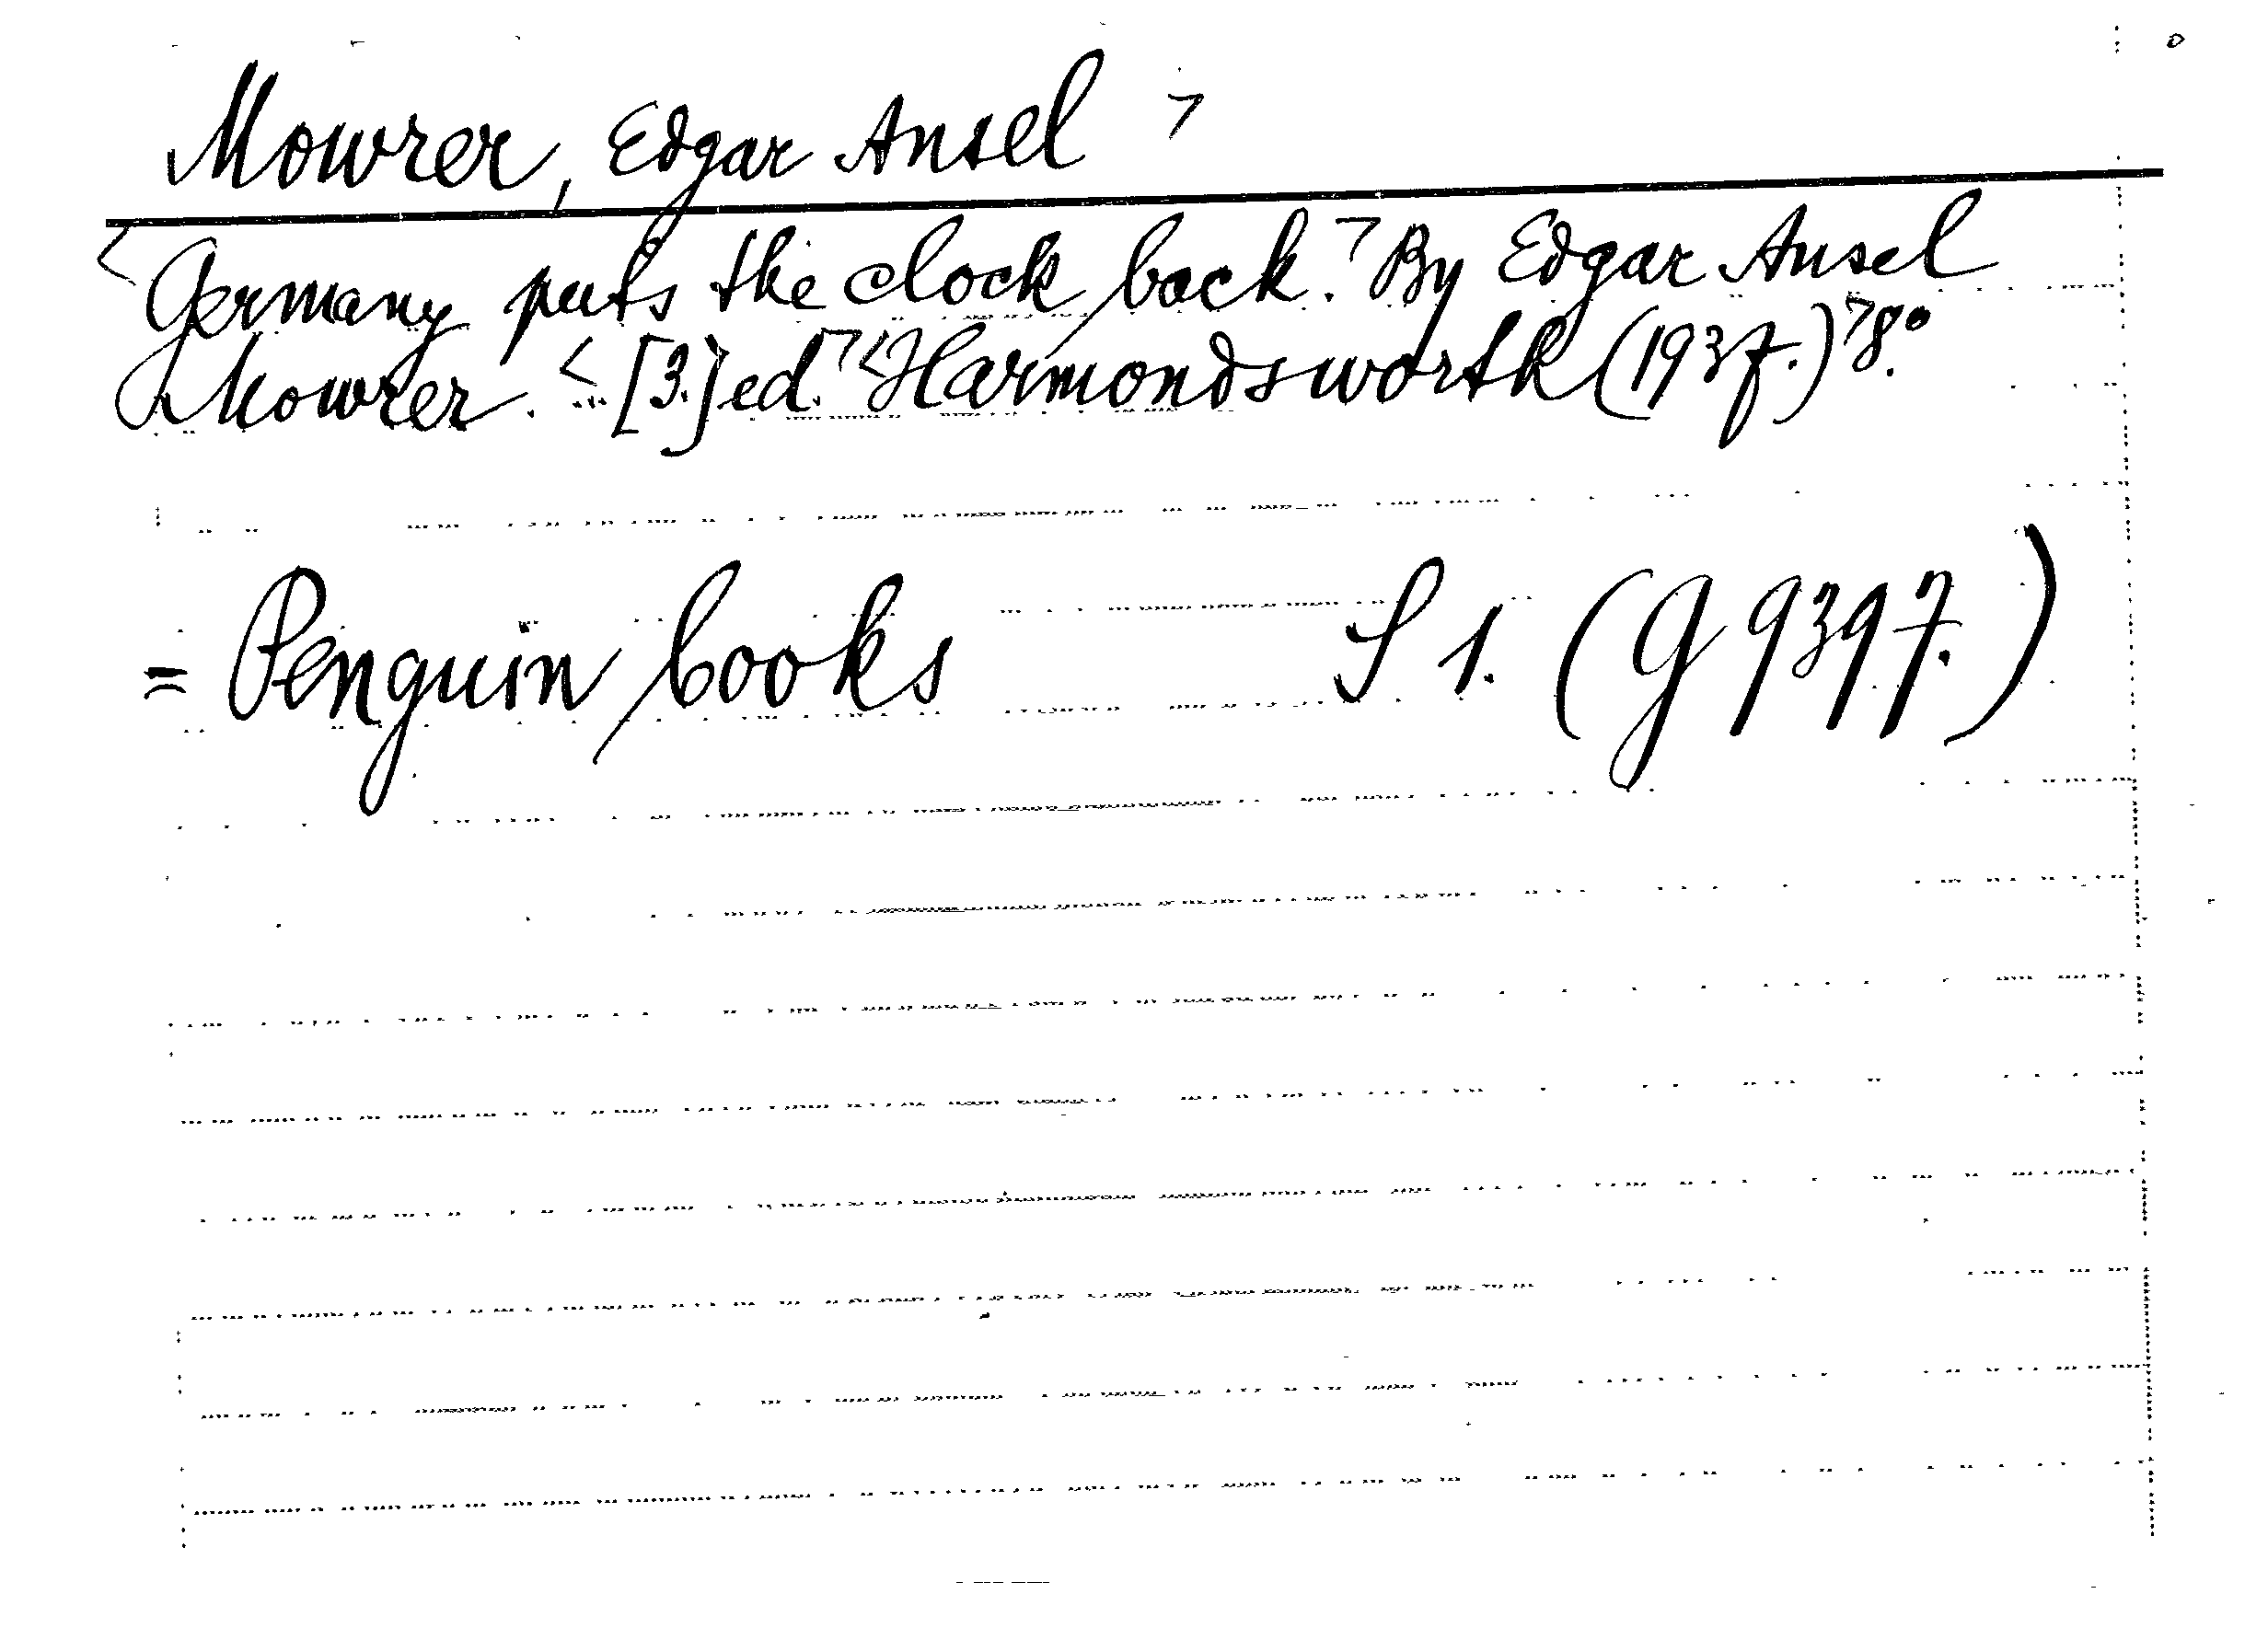 Mowrer, Edgar Ansel >
< Germany puts the clock back. > By Edgar Ansel
Mowrer. < [3.] ed. > < Harmondsworth (1937.) > 8°.
= Penguin books S 1. (G 9397.)